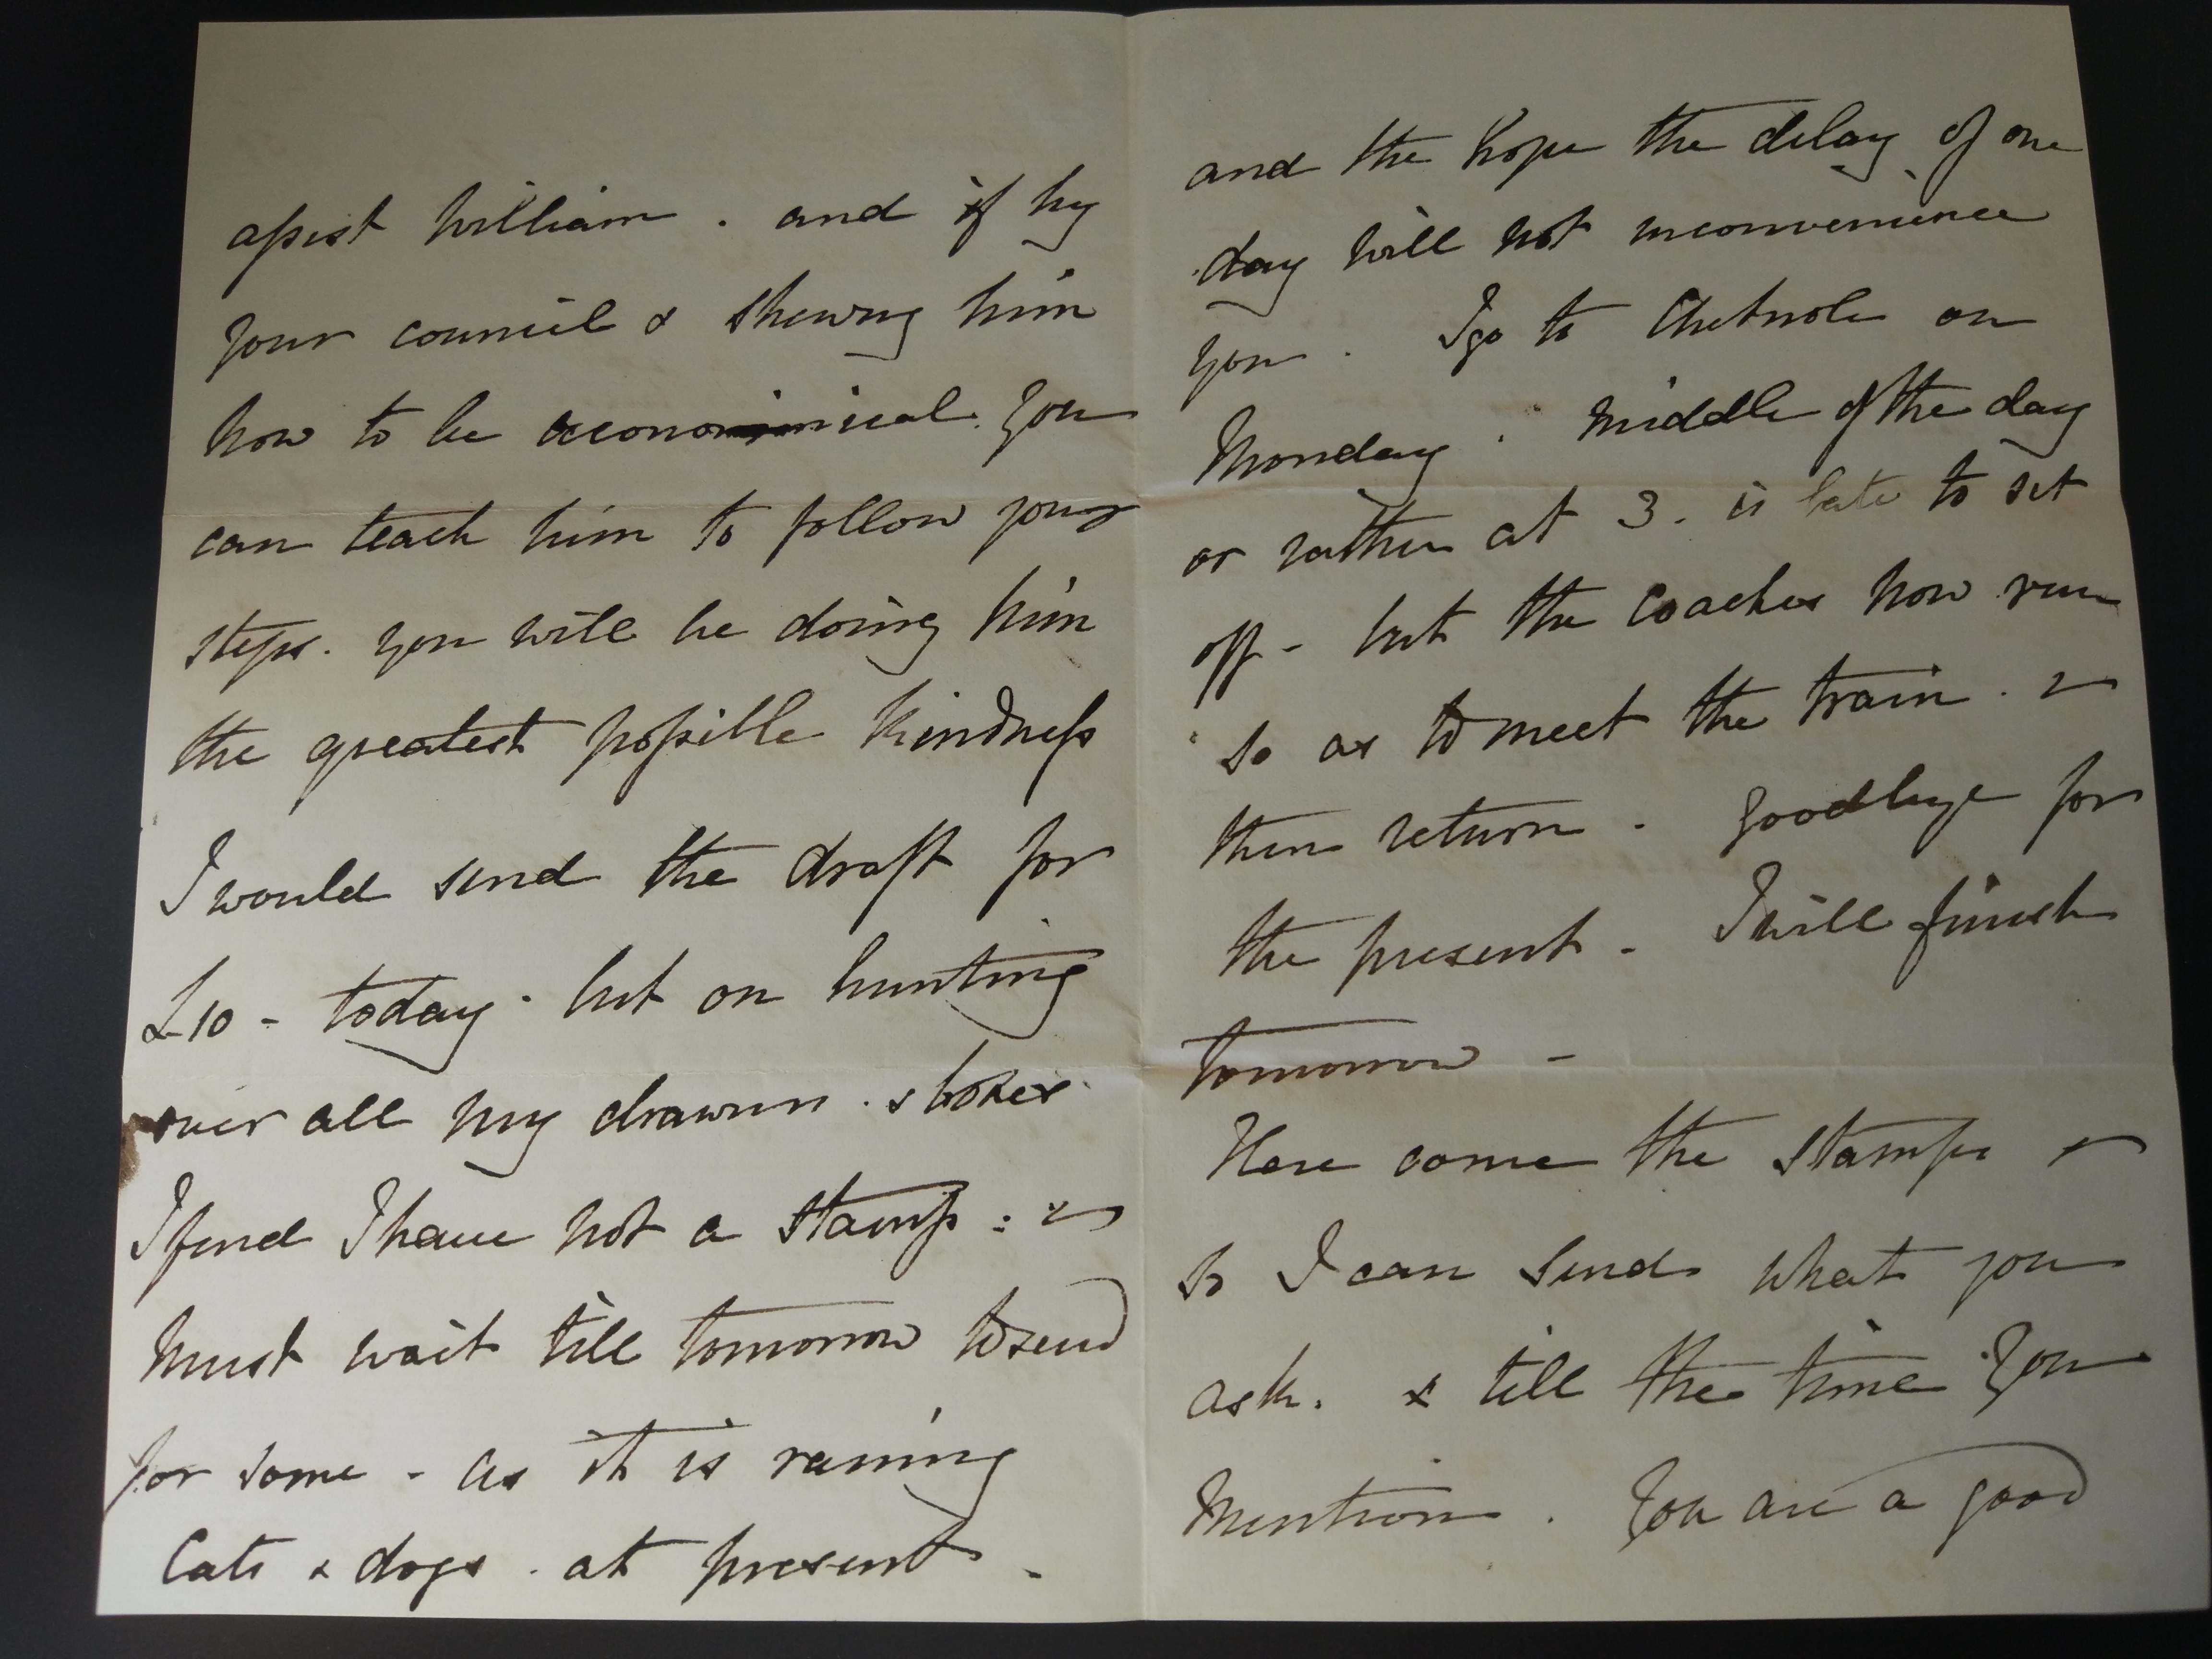 assist William. and if by
your council & shewing him
how to be economical. You
can teach him to follow your
steps. you will be doing him
the greatest possible kindness
I would send the draft for
£10 - today - but on hunting
over all my drawers. & boxes.
I find I have not a stamp: &
must wait till tomorrow to send
for some - as it is raining
Cats & dogs. at present -
and the hope the delay of one
day will not inconvenience
you. I go to Chetnole on
Monday. Middle of the day
or rather at 3. is late to set
off - but the Coaches now run
so as to meet the train. &
then return - Goodbye for
the present - I will finish
tomorrow -
Here come the stamps &
so I can send what you
ask. & till the time You
Mention. You are a good